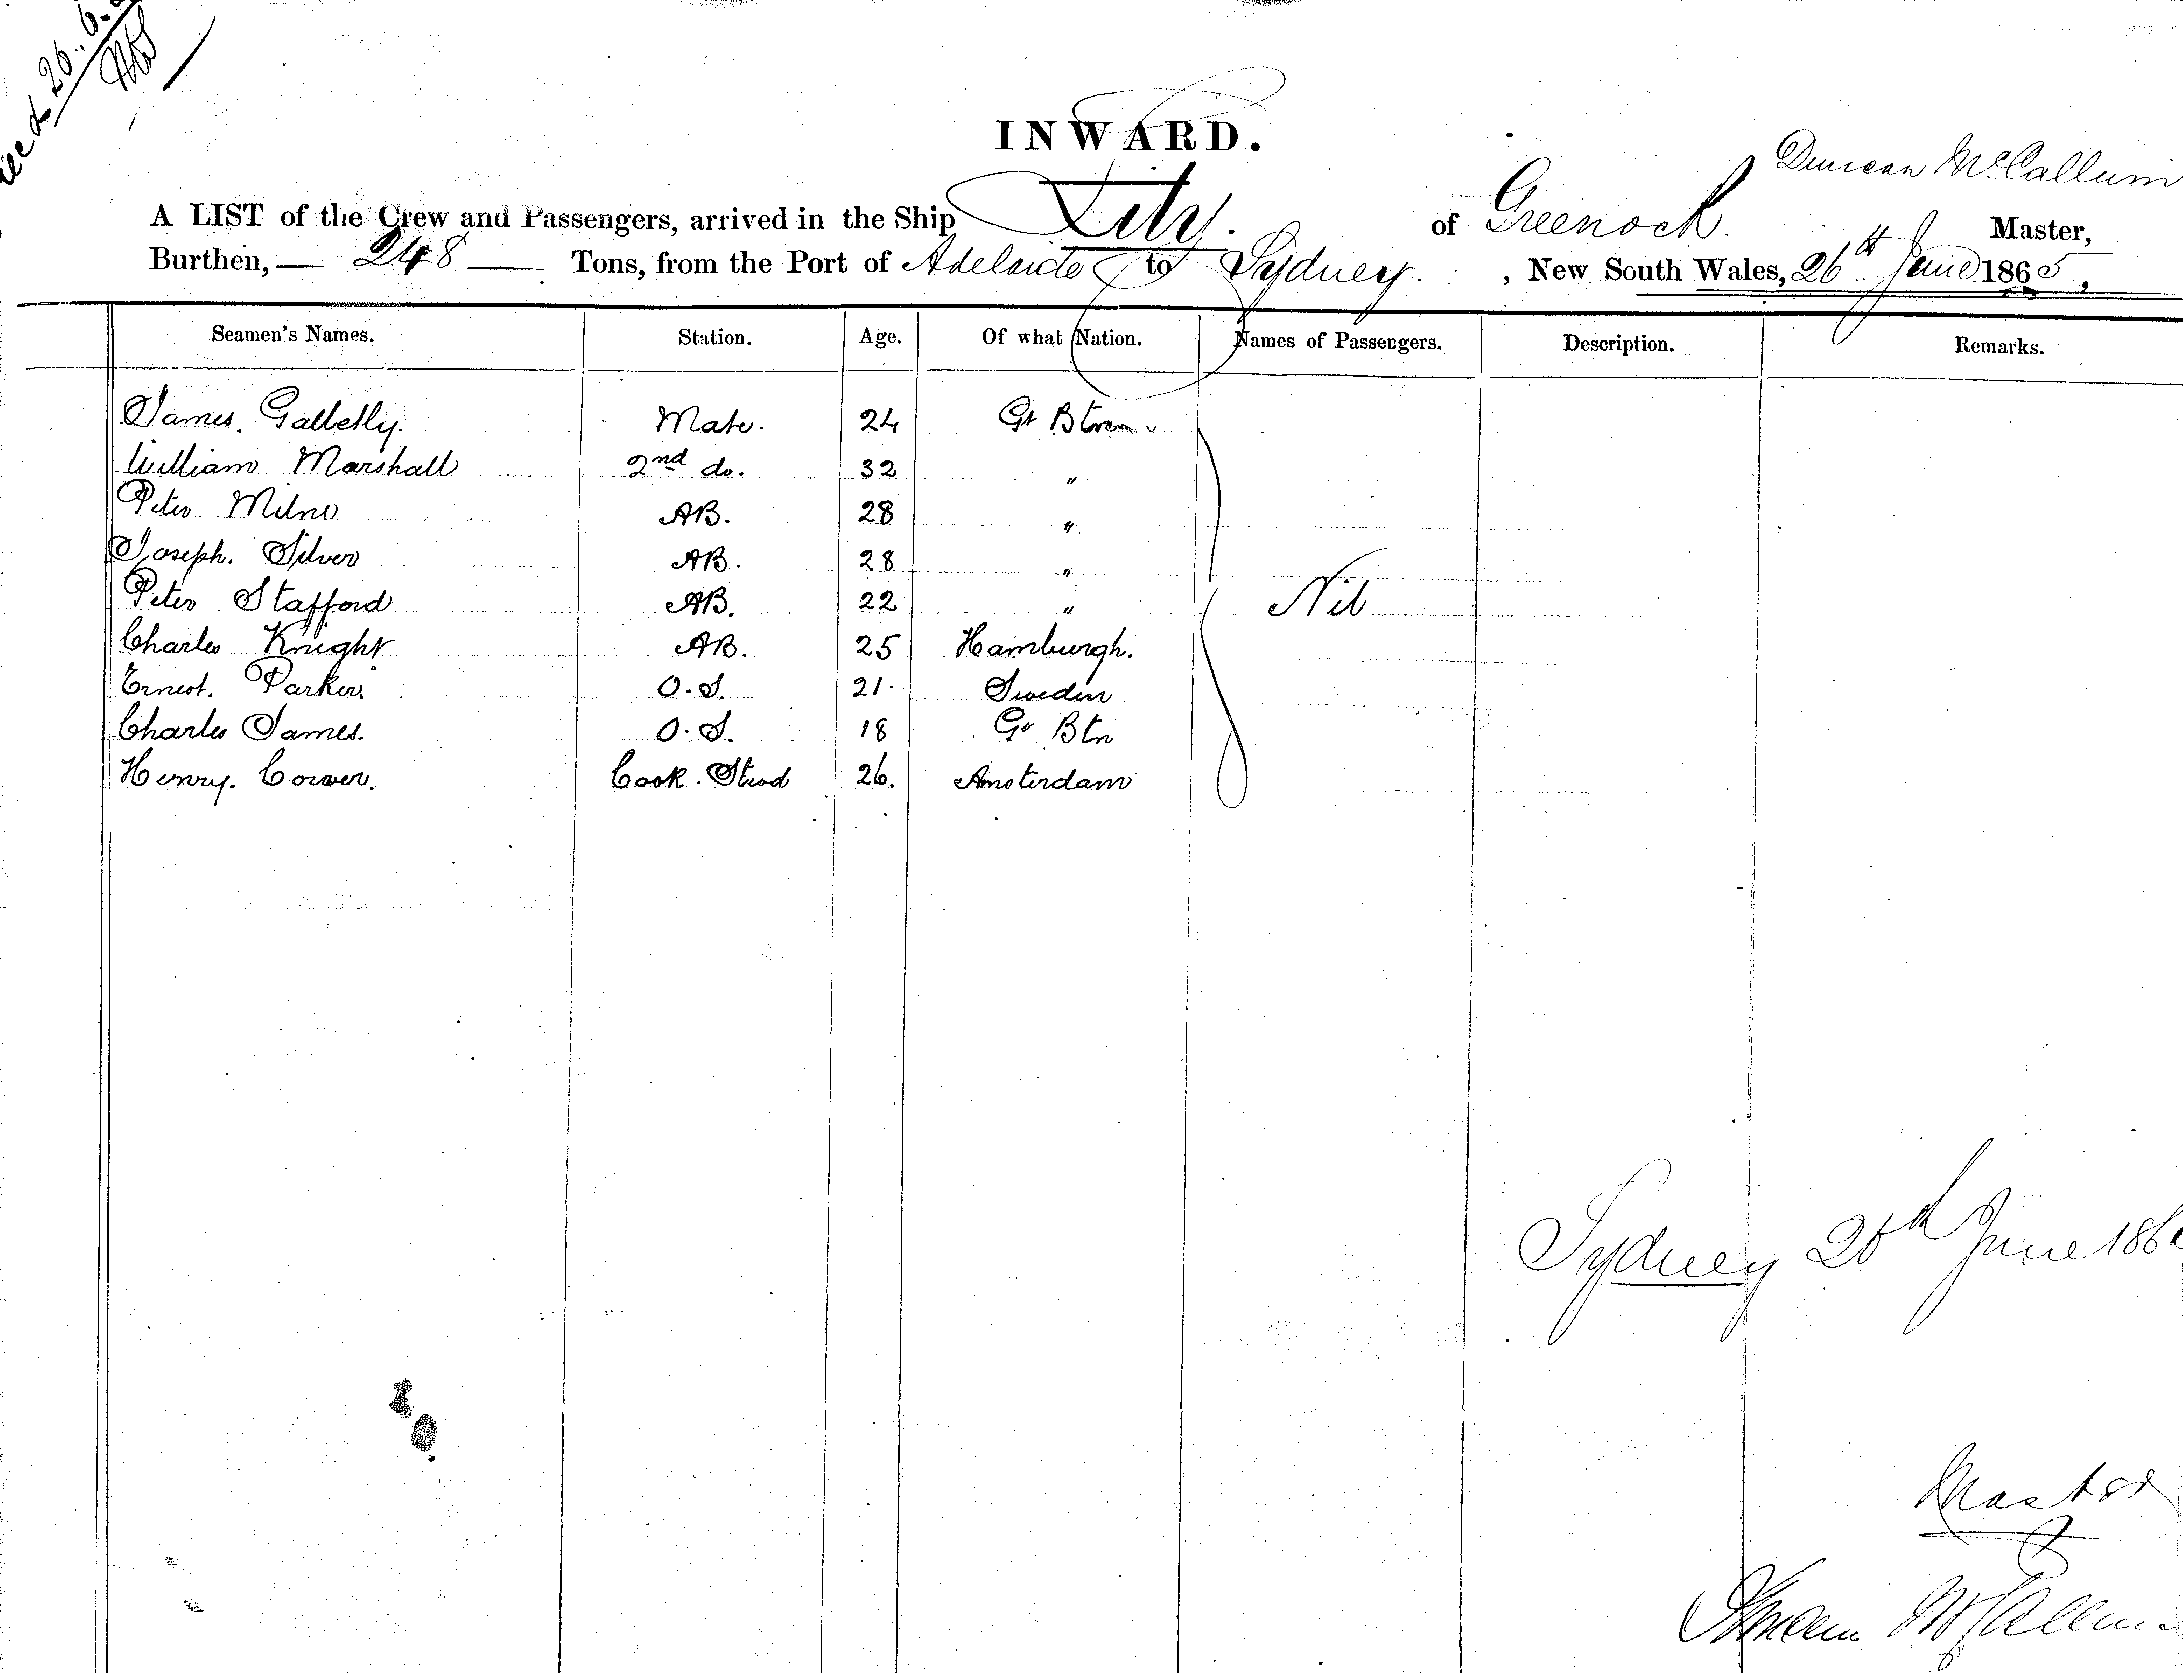 26.6.
INWARD.
Duncan McCallum
A LIST of the Crew and Passengers, arrived in the Ship Lily. of Greenock Master,
Burthen, — 248 — Tons, from the Port of Adelaide to Sydney. , New South Wales, 26th June 1865,
Seamen's Names. Station. Age. Of what Nation. Names of Passengers. Description. Remarks.
James. Galletly. Mate. 24 Gt Btn
William Marshall 2nd do. 32 "
Peter Milne AB. 28 "
Joseph. Silver AB. 28 "
Peter Stafford AB. 22 " Nil
Charles Knight AB. 25 Hamburgh.
Ernest. Parker. O.S. 21. Sweden
Charles James. O.S. 18 Gt Btn
Henry. Corver. Cook. Stwd 26. Amsterdam
Sydney 26th June 186
Master
Duncan McCallum